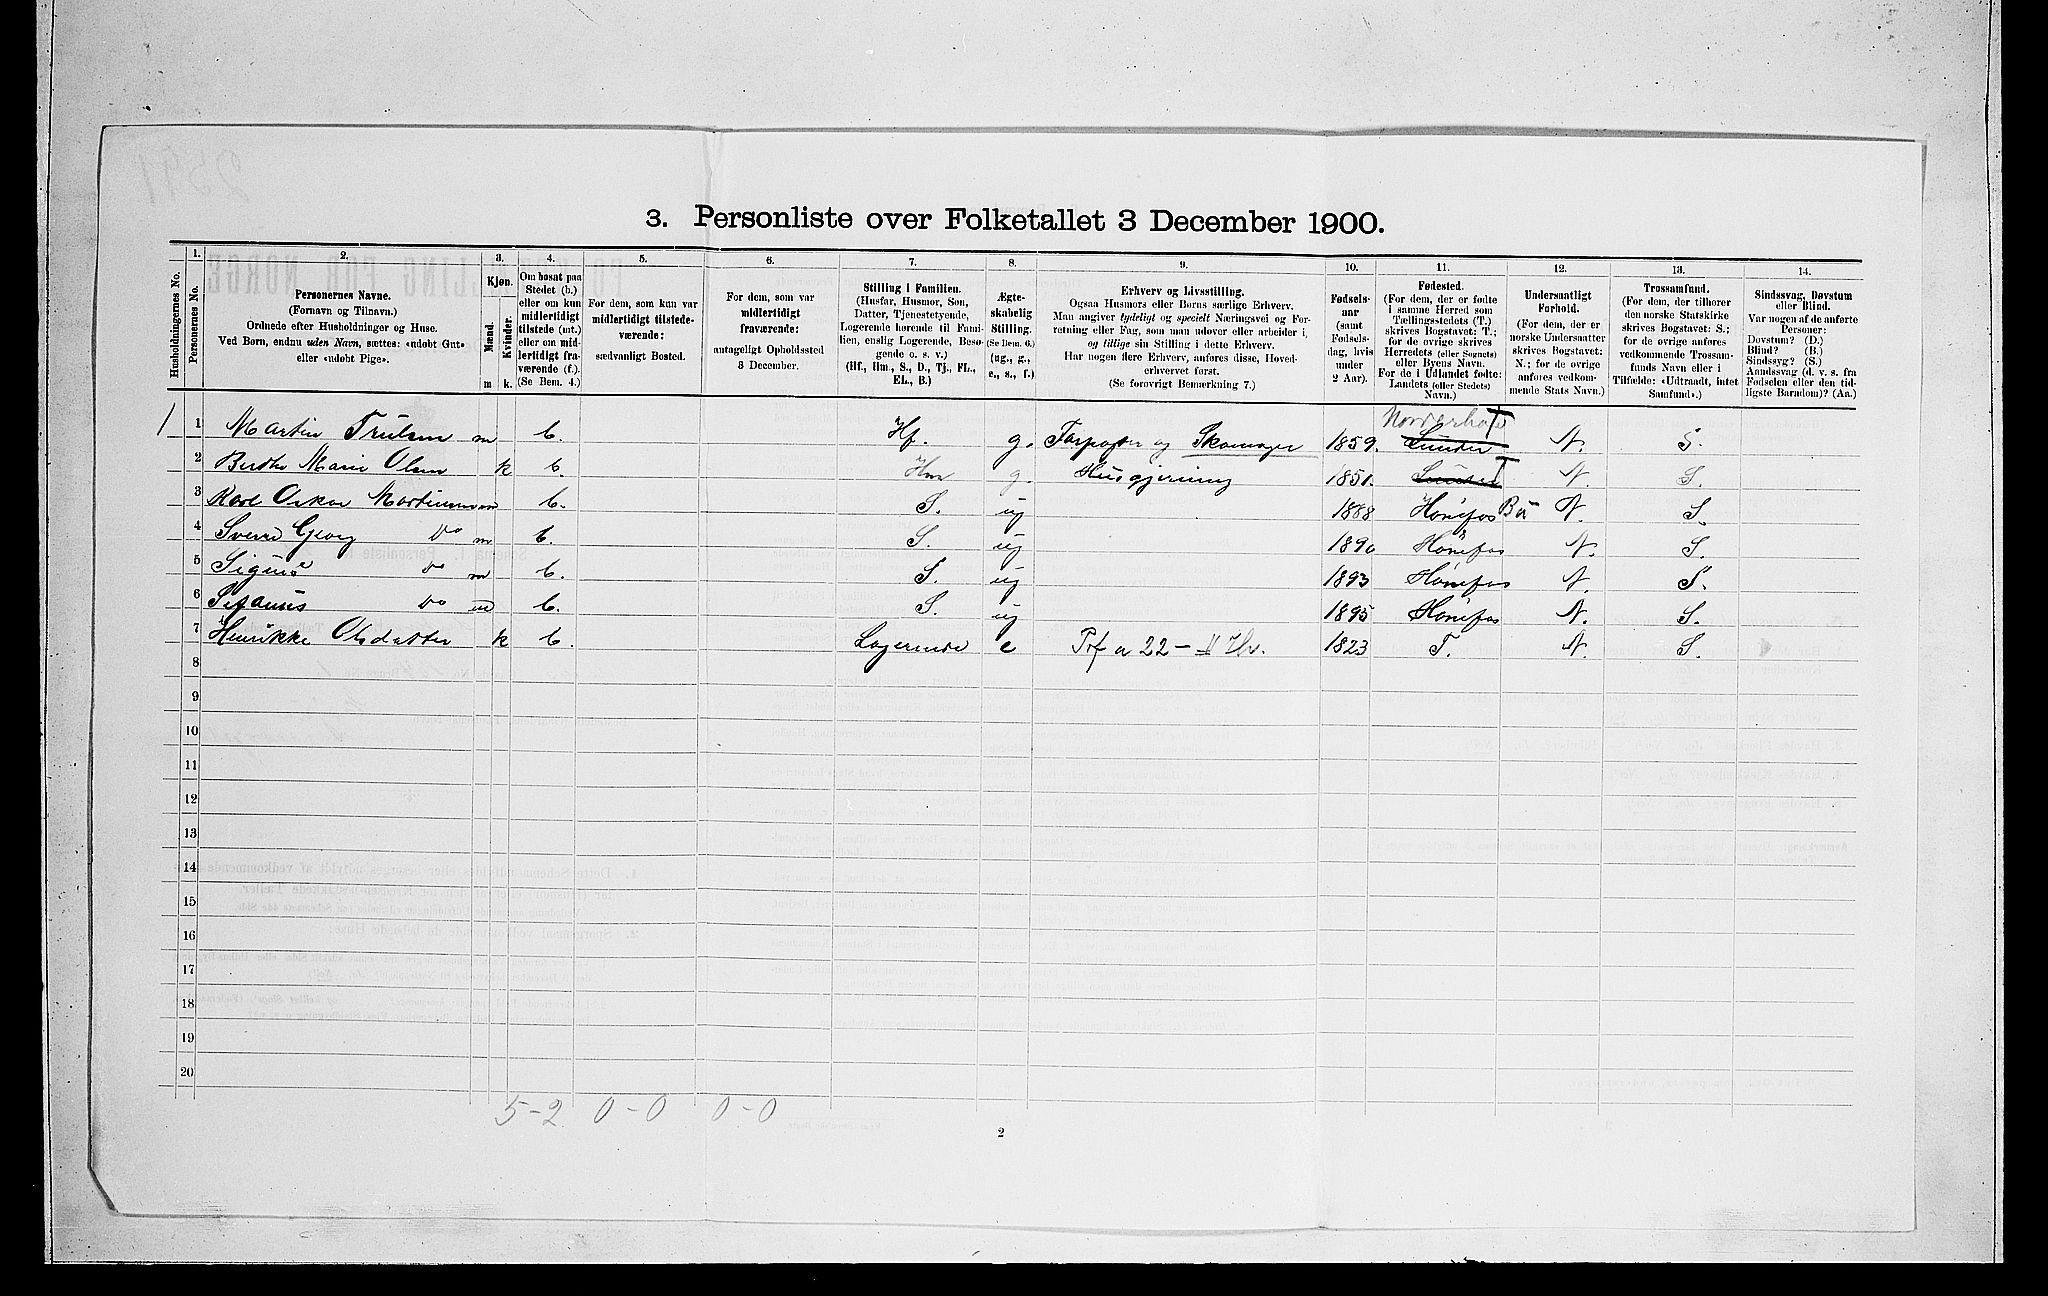 3. Personliste over Folketallet 3 December 1900.
Husholdningernes No.
1. Personernes No.
2. Personernes Navne. (Fornavn og Tilnavn.) Ordnede efter Husholdninger og Huse. Ved Børn, endnu uden Navn, sættes: «udøbt Gut» eller «udøbt Pige».
3. Kjøn. Mænd. m Kvinder. k.
4. Om bosat paa Stedet (b.) eller om kun midlertidigt tilstede (mt.) eller om midlertidigt fraværende (f.) (Se Bem. 4.)
5. For dem, som kun var midlertidigt tilstedeværende: sædvanligt Bosted.
6. For dem, som var midlertidigt fraværende: antageligt Opholdssted 3 December.
7. Stilling i Familien. (Husfar, Husmor, Søn, Datter, Tjenestetyende, Logerende hørende til Familien, enslig Logerende, Besøgende o. s. v.) (Hf., Hm., S., D., Tj., FL., EL., B.)
8. Ægteskabelig Stilling. (Se Bem. 6.) (ug., g., e., s., f.)
9. Erhverv og Livsstilling. Ogsaa Husmors eller Børns særlige Erhverv. Man angiver tydeligt og specielt Næringsvei og Forretning eller Fag, som man udøver eller arbeider i, og tillige sin Stilling i dette Erhverv. Har nogen flere Erhverv, anføres disse, Hovederhvervet først. (Se forøvrigt Bemerkning 7.)
10. Fødselsaar (samt Fødselsdag, hvis under 2 Aar).
11. Fødested. (For dem, der er fødte i samme Herred som Tællingsstedets (T.) skrives Bogstavet: T; for de øvrige skrives Herredets (eller Sognets) eller Byens Navn. For de i Udlandet fødte: Landets (eller Stedets) Navn.)
12. Undersaatligt Forhold. (For dem, der er norske Undersaatter skrives Bogstavet: N.; for de øvrige anføres vedkommende Stats Navn.)
13. Trossamfund. (For dem, der tilhører den norske Statskirke skrives Bogstavet: S.; for de øvrige anføres vedkommende Trossamfunds Navn eller i Tilfælde: «Udtraadt, intet Samfund».)
14. Sindssvag, Døvstum eller Blind. Var nogen af de anførte Personer: Døvstum? (D.) Blind? (B.) Sindssyg? (S.) Aandssvag (d. v. s. fra Fødselen eller den tidligste Barndom)? (Aa.)
1 1 Martin Trulsen m b. Hf. g. og Skomager 1859. Norderhov Lunder T N. S.
2 Berthe Marie Olsen k b. Hm g. Husgjerning 1851. Lunder T N. S.
3 Karl Oskar Martinsen m b. S. ug 1888 Hønefos By N. S.
4 Sverre Georg Do m b. S. ug 1890 Hønefos N. S.
5 Sigurd Do m b. S. ug 1893 Hønefos N. S.
6 Do m b. S. ug 1895 Hønefos N. S.
7 Henrikke Olsdatter k b. Logerende e 22 – 1823 T. N. S.
8
9
10
11
12
13
14
15
16
17
18
19
20
5-2 0-0 0-0
2